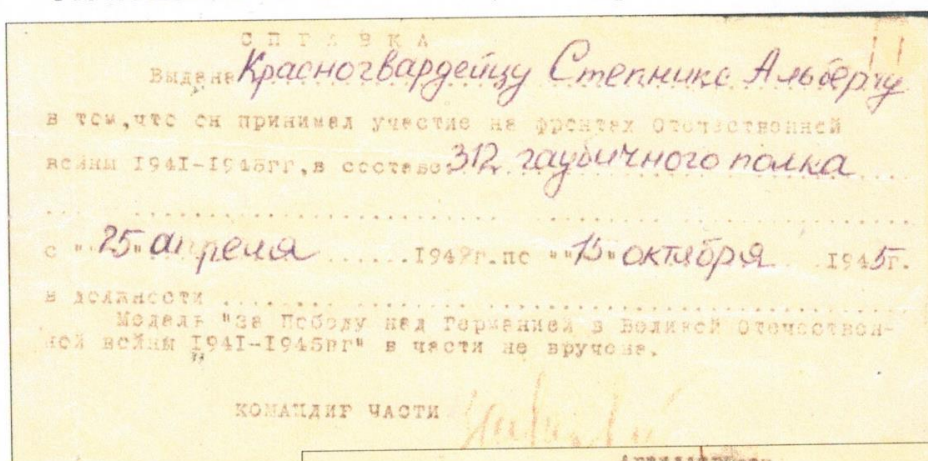 СПРАВКА
Выдана Красногвардейцу Степникс Альберту
в том, что он принимал участие на фронтах Отечественной
войны 1941-1945гг, в составе 312 гаубичного полка
с "25" апреля ......194 г. по "15" октября 1945г.
в должности ........................
Медаль "За Победу над Германией в Великой Отечествен-
ной войны 1941-1945гг" в части не вручена.
КОМАНДИР ЧАСТИ